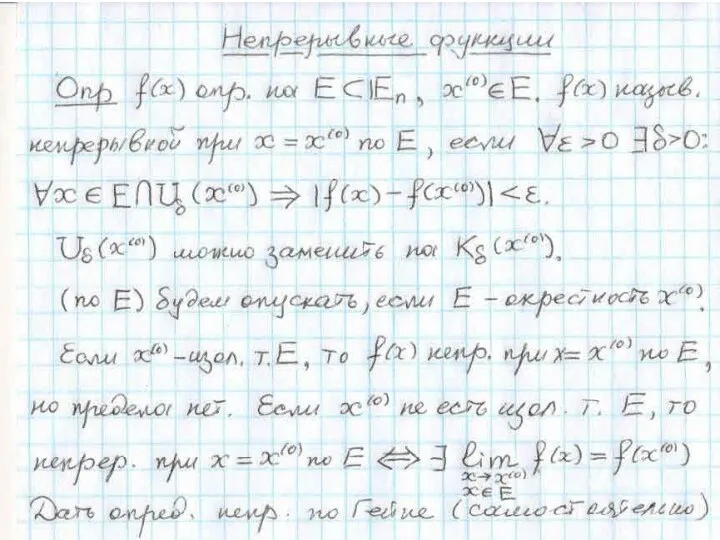 Непрерывные функции
Опр f(x) опр. на E⊂Eₙ, x⁽⁰⁾∈E. f(x) назыв.
непрерывной при x = x⁽⁰⁾ по E, если ∀ε>0 ∃δ>0:
∀x ∈ E∩U_δ(x⁽⁰⁾) ⇒ |f(x) − f(x⁽⁰⁾)| < ε.
U_δ(x⁽⁰⁾) можно заменить на K_δ(x⁽⁰⁾).
(по E) будем опускать, если E – окрестность x⁽⁰⁾.
Если x⁽⁰⁾ – изол. т. E, то f(x) непр. при x = x⁽⁰⁾ по E,
но предела нет. Если x⁽⁰⁾ не есть изол. т. E, то
непрер. при x = x⁽⁰⁾ по E ⇔ ∃ lim f(x) = f(x⁽⁰⁾)
x→x⁽⁰⁾
x∈E
Дать опред. непр. по Гейне (самостоятельно)